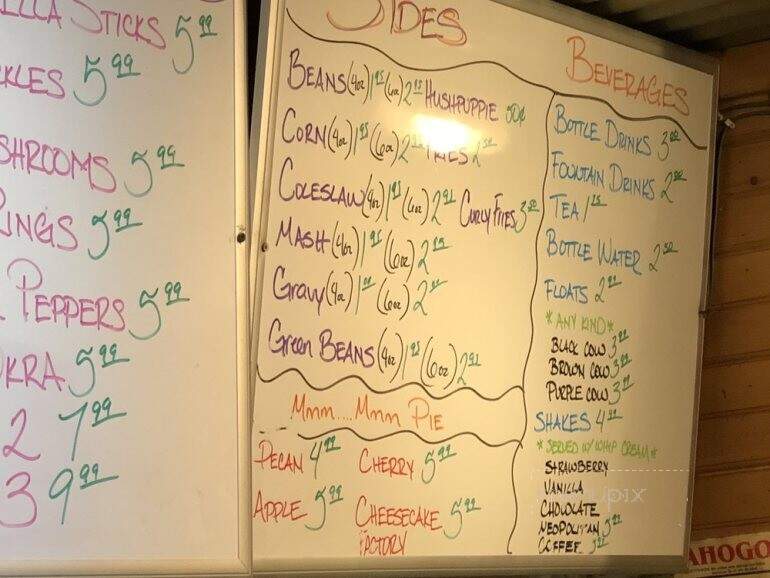 STICKS 5 99
KLES 5 99
SHROOMS 5 99
INGS 5 99
PEPPERS 5 99
KRA 5 99
2 7 99
3 9 99
SIDES
BEANS (4oz) 1 95 (6oz) 2 95 HUSHPUPPIE 50¢
CORN (4oz) 1 95 (6oz) FRIES
COLESLAW (4oz) 1 95 (6oz) 2 95 CURLY FRIES 3 50
MASH (4oz) 1 95 (6oz) 2 95
GRAVY (4oz) 1 (6oz) 2
Green BEANS (4oz) 1 95 (6oz) 2 95
Mmm....Mmm PIE
PECAN 4 99 CHERRY 5 99
APPLE 5 99 CHEESECAKE 5 99
FACTORY
BEVERAGES
BOTTLE DRINKS 3 00
FOUNTAIN DRINKS 2 00
TEA 1
BOTTLE WATER 2 50
FLOATS 2 99
*ANY KIND*
BLACK COW 3 99
BROWN COW 3 99
PURPLE COW 3 99
SHAKES 4 99
*SERVED W/ WHIP CREAM*
STRAWBERRY
VANILLA
CHOCOLATE
NEOPOLITAN
COFFEE
AHOGO